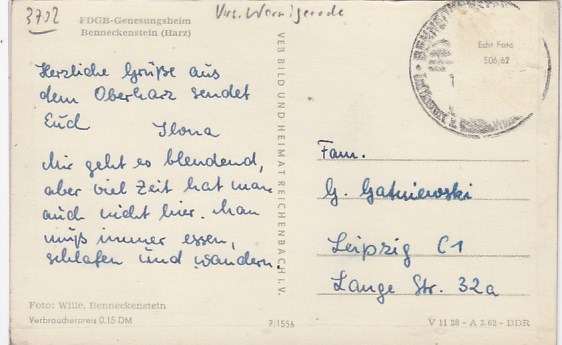 3702
Krs. Wernigerode
FDGB-Genesungsheim
Benneckenstein (Harz)
Herzliche Grüße aus
dem Oberharz sendet
Euch Ilona
Mir geht es blendend,
aber viel Zeit hat man
auch nicht hier. Man
muß immer essen,
schlafen und wandern.
Foto: Wille, Benneckenstein
Verbraucherpreis 0.15 DM
VEB BILD UND HEIMAT REICHENBACH I. V.
7/1556
Echt Foto
506/62
Fam.
G. Gatniewski
Leipzig C1
Lange Str. 32a
V 11 28 - A 2.62 - DDR